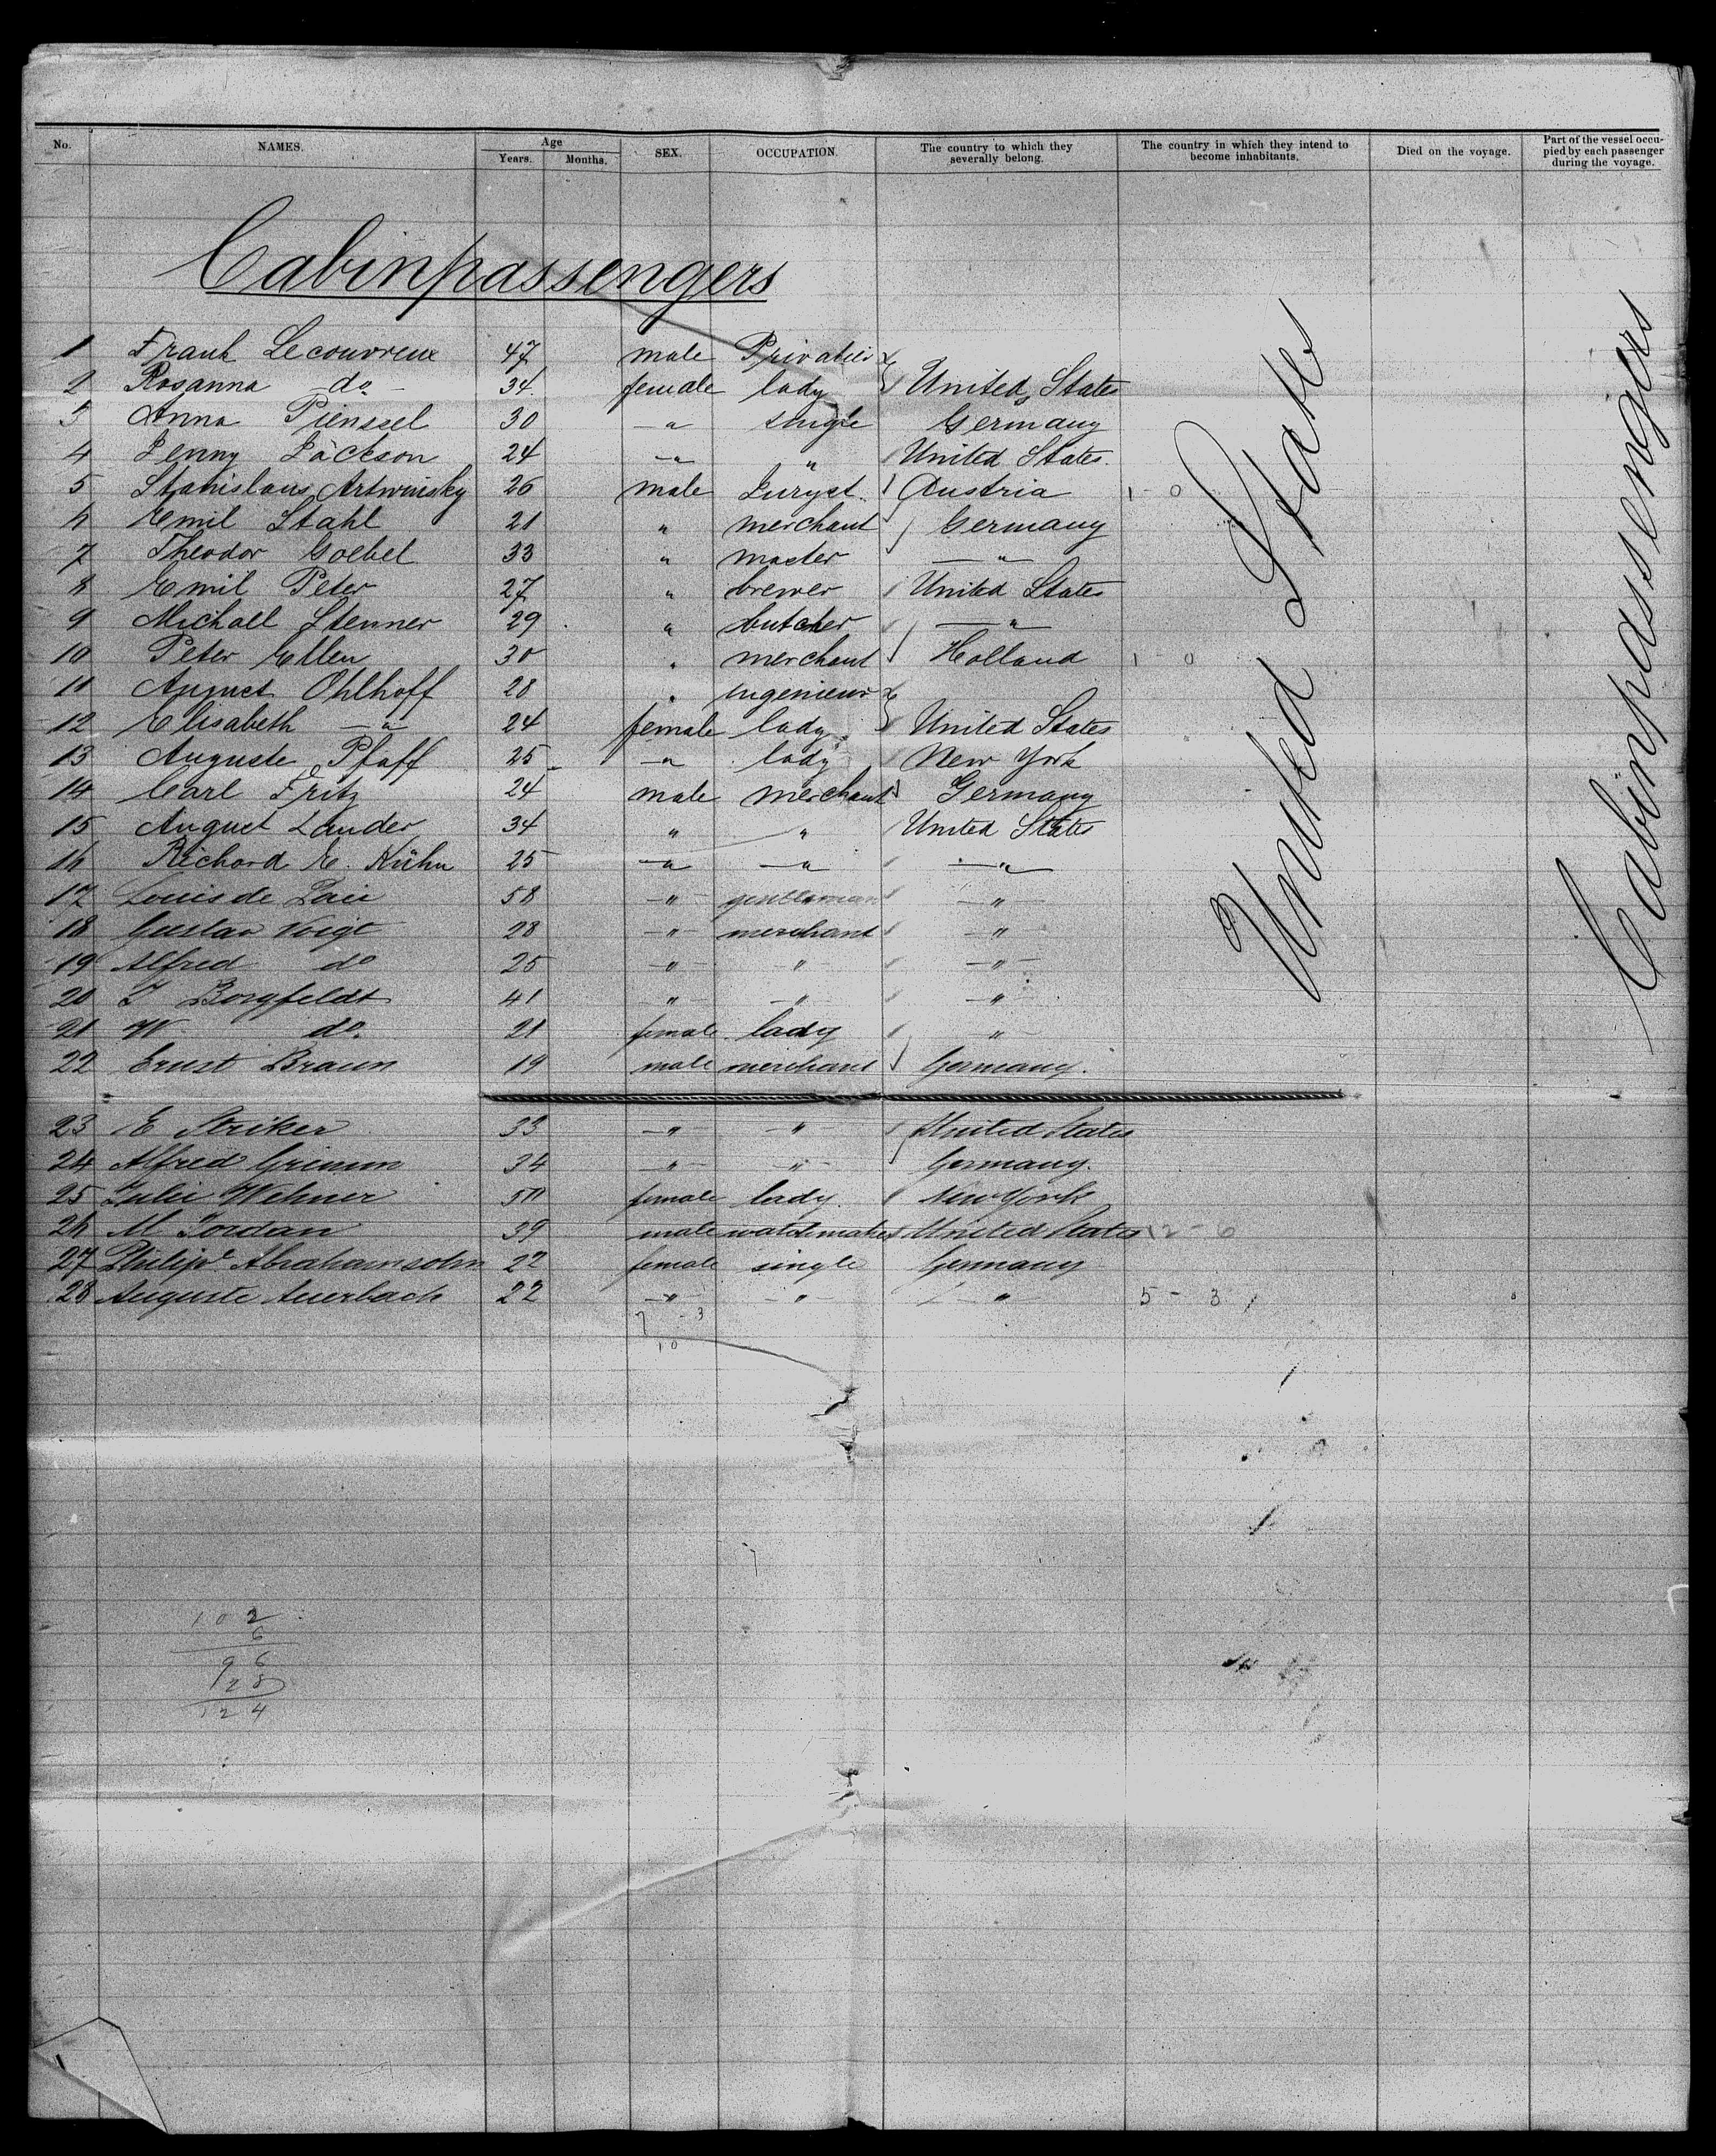 No. NAMES. Age Years. Months. SEX. OCCUPATION. The country to which they severally belong. The country in which they intend to become inhabitants. Died on the voyage. Part of the vessel occupied by each passenger during the voyage.
Cabinpassengers
1 Frank Lecouvreur 47 male Privatier
2 Rosanna do 34 female lady United States
3 Anna 30 " single Germany
4 Jenny Jackson 24 " " United States.
5 Stanislaus Artwinsky 26 male Juryst. Austria 1 - 0
6 Emil Stahl 21 " merchant Germany
7 Theodor Goebel 33 " master "
8 Emil Peter 27 " brewer United States
9 Michael Stenner 29 " butcher "
10 Peter Ellen 30 " merchant Holland 1 - 0
11 August Ohlhoff 28 " ingenieur
12 Elisabeth " 24 female lady United States
13 Auguste Pfaff 25 " lady New York
14 Carl Fritz 24 male merchant Germany
15 August Lander 34 " " United States
16 Richard E. Kühn 25 " " "
17 Louis de 58 " gentleman "
18 Gustav Voigt 28 " merchant "
19 Alfred do 25 " " "
20 Borgfeldt 41 " " "
21 W do. 21 female lady "
22 Ernst Braun 19 male merchant Germany.
23 E Striker 33 " " United States
24 Alfred Grimm 34 " " Germany.
25 Julie Wehner 50 female lady New York
26 M Jordan 39 male watchmaker United States 12 - 6
27 Philipe Abrahamsohn 22 female single Germany
28 Auguste Auerbach 22 " " " 5 - 3
7 - 3
10
102
6
96
28
124
United States
Cabinpassengers